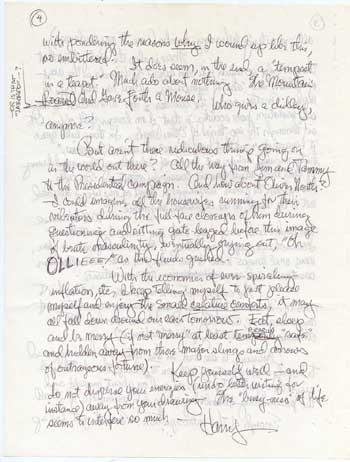 4
with pondering the reasons why I wound up like this,
so embittered. It does seem, in the end, a "tempest
in a teapot." Much ado about nothing. The Mountain
and Gave Forth a Mouse. Who gives a
anymore?
But aren't there ridiculous things going on
in the world out there? All the way from Jim and Tammy
to the Presidential campaign. And how about Oliver North?
I could imagine all the housewives running for their
during the full face closeups of him during
questioning and sitting before this image
of brute masculinity, crying out, "Oh
OLLIEEE!" as the fluids
With the economics of ever-spiraling
inflation, etc, I keep telling myself to just placate
myself and enjoy the small comforts, it may
all fall down around our ears tomorrow. Eat, sleep
and be merry (if not "merry" at least "safe"
and hidden away from those major slings and arrows
of outrageous fortune). Keep yourself well — and
do not disperse your energies (into letter writing for
instance) away from your drawing. The "busy-ness" of life
seems to interfere so much —
Harry